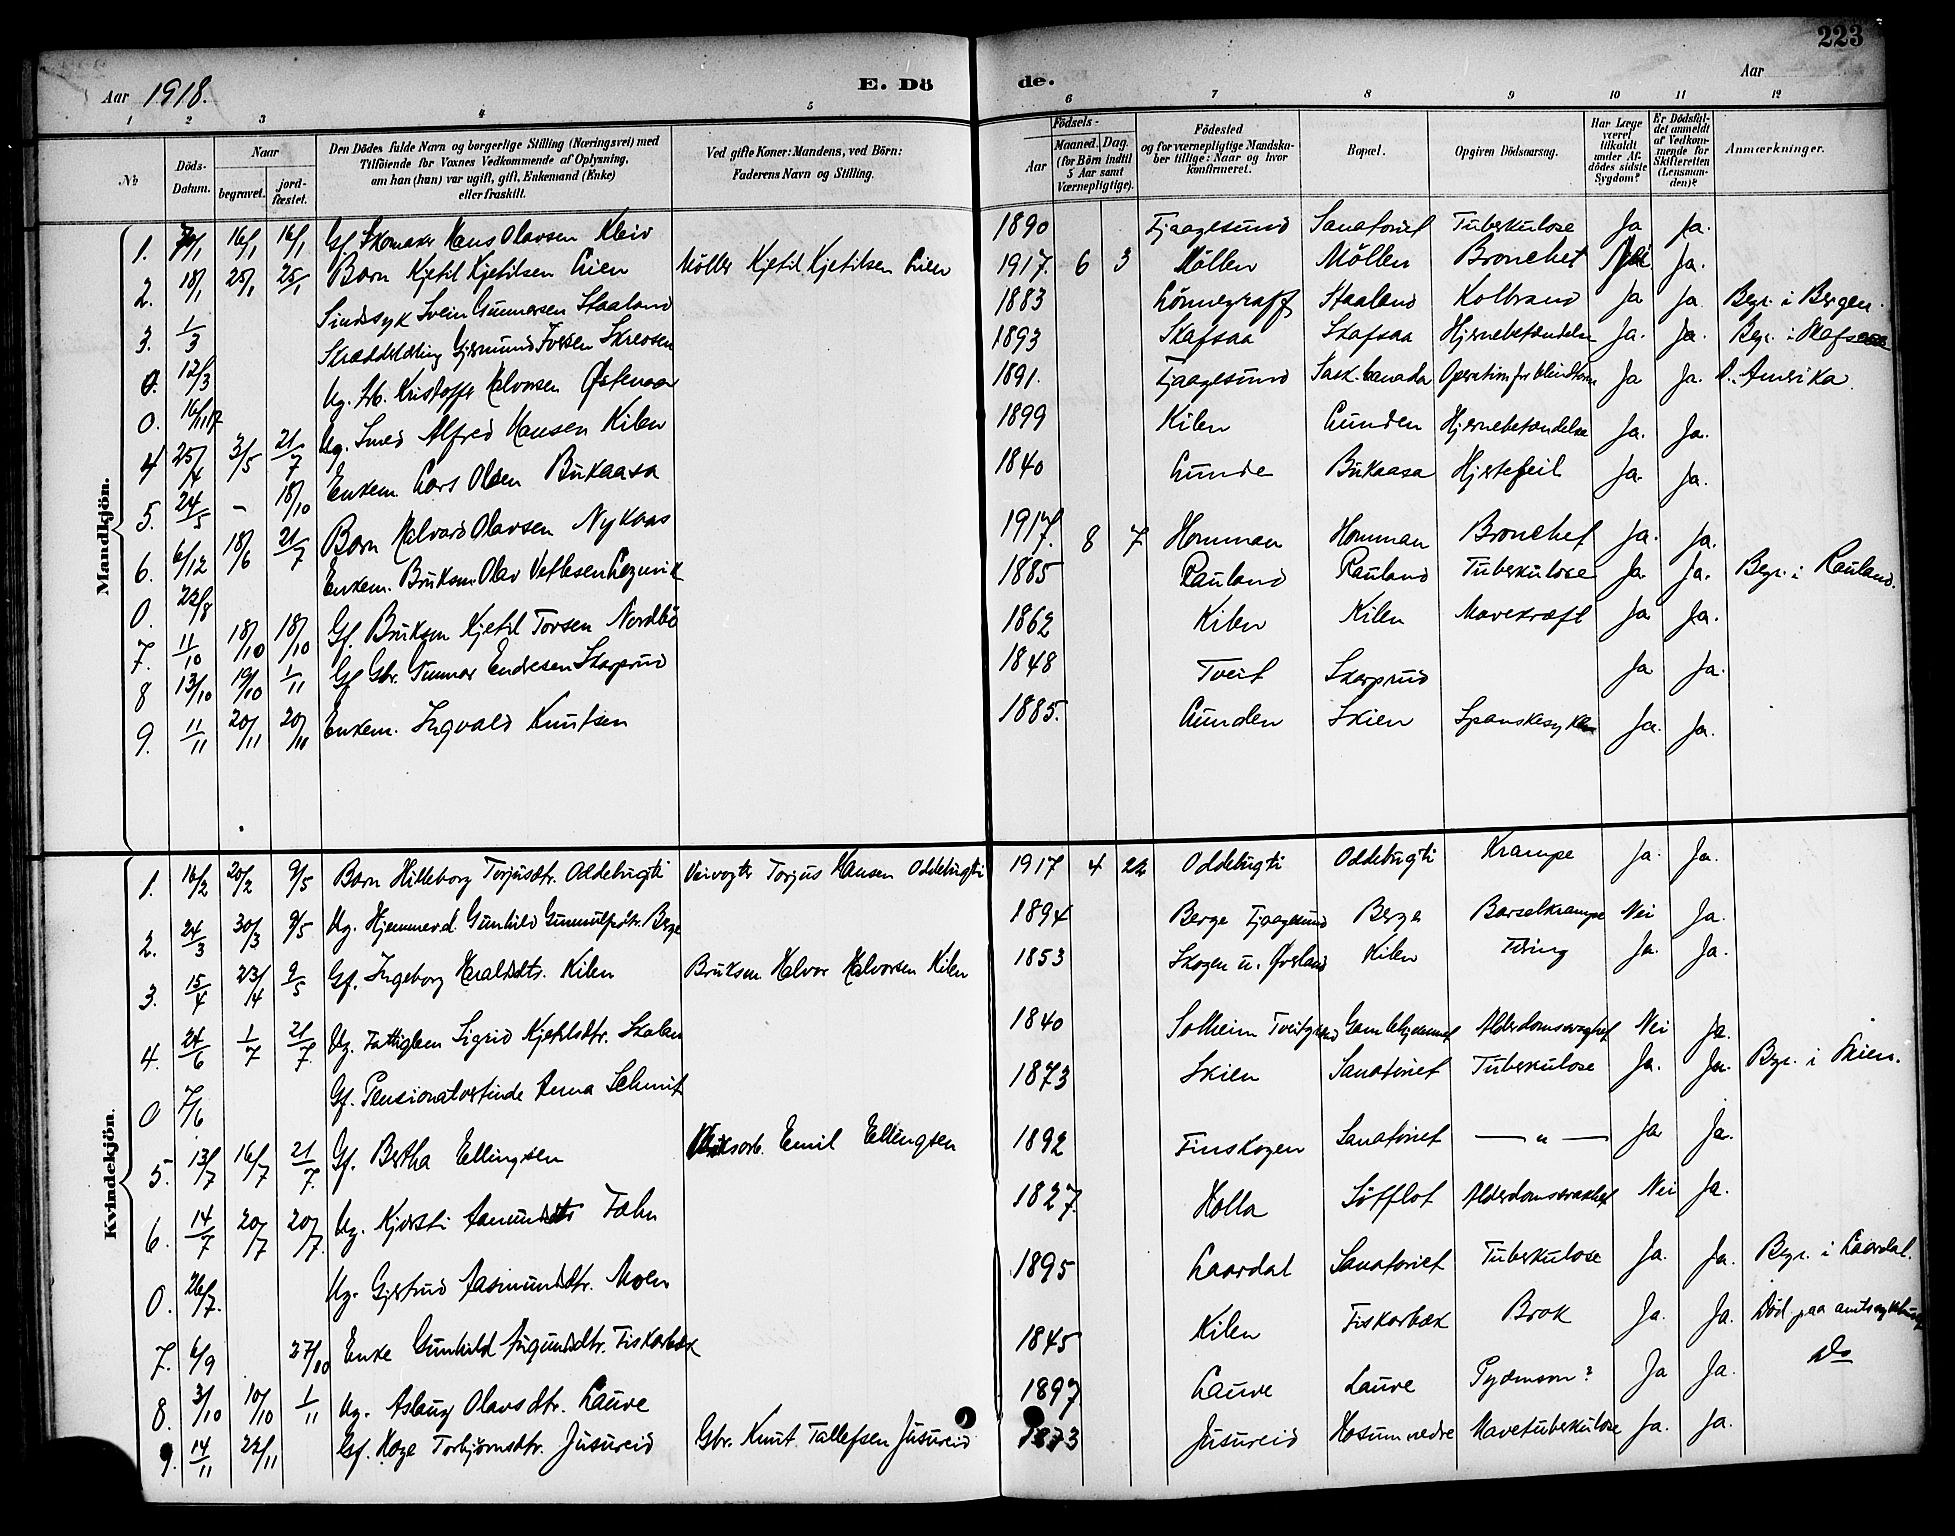 223
Aar 1918. E. Dö de. Aar
1 2 3 4 5 6 7 8 9 10 11 12
№ Döds-Datum. Naar begravet. jord-fæstet. Den Dödes fulde Navn og borgerlige Stilling (Næringsvei) med Tilföiende for Voxnes Vedkommende af Oplysning, om han (hun) var ugift, gift, Enkemand (Enke) eller fraskilt. Ved gifte Koner: Mandens, ved Börn: Faderens Navn og Stilling. Födsels- Aar Maaned. Dag. (for Börn indtil 5 Aar samt Værnepligtige). Födested og for værnepligtige Mandskaber tillige: Naar og hvor konfirmeret. Bopæl. Opgiven Dödsaarsag. Har Læge været tilkaldt under Afdödes sidste Sygdom? Er Dödsfaldet anmeldt af Vedkommende for Skifteretten (Lensmanden)? Anmærkninger.
Mandkjön.
1. 16/1 16/1 Gf. Skomaker Hans Olavsen Kleiv 1890 Fjaagesund Sanatoriet Tuberkulose Ja Ja.
2. 18/1 25/1 25/1 Barn Kjetil Kjetilsen Lien Möller Kjetil Kjetilsen Lien 1917. 6 3 Möllen Möllen Bronchet Ja.
3. 1/3 Sindssyk Svein Gunnarsen Staaland 1883 Lönnegraff Staaland Koldbrand Ja Ja Begr. i Bergen.
0. 12/3 Gjermund Iversen Skreosen 1893 Skafsaa Skafsaa Hjernebetændelse Ja. Ja. Begr. i Skafsaa
0. 16/11 17 Ug. Arb. Kristoffer Halvorsen Östenaa 1891. Fjaagesund Sask. Canada Operation for blindtarm Ja Ja. D. Amerika.
4 25/4 3/5 21/7 Ug. Smed Alfred Hansen Kilen 1899 Kilen Lunden Hjernebetændelse Ja. Ja.
5. 24/5 - 18/10 Enkem. Lars Olsen Bukaasa 1840 Lunde Bukaasa Hjertefeil Ja. Ja.
6. 6/12 18/6 21/7 Barn Halvard Olavsen Nykaas 1917. 8 7 Homman Homman Bronchet Ja. Ja.
0. 22/8 Enkem. Bruksm. Olav Vetlesen 1885 Rauland Rauland Tuberkulose Ja. Ja. Begr. i Rauland.
7. 11/10 18/10 18/10 Gf. Bruksm Kjetil Torsen Nordbö 1862 Kilen Kilen Mavekræft Ja Ja.
8 13/10 19/10 1/11 Gf Gbr. Gunnar Endresen Skarprud 1848 Tveit Skarprud Ja Ja.
9. 11/11 20/11 20/11 Enkem. Ingvald Knutsen 1885. Lunden Skien Spanskesyken Ja. Ja.
Kvindekjön.
1. 16/2 20/2 9/5 Barn Hilleborg Torjusdtr. Oddebugti Veivogter Torjus Hansen Oddebugti 1917 4 22 Oddebugti Oddebugti Krampe Ja. Ja.
2. 24/3 30/3 9/5 Ug. Hjemmev.d. Gunhild Gunnulfsdtr. Berge 1894 Berge Fjaagesund Berge Barselkrampe Nei Ja.
3. 15/4 23/4 9/5 Gf. Ingeborg Haraldsdtr. Kilen Bruksm Halvor Halvorsen Kilen 1853 Skogen u. Kilen Tæring Ja. Ja.
4. 24/6 1/7 21/7. Ug. Fattiglem Sigrid Kjetilsdtr. Skalen 1840 Solheim Gamlehjemmet Alderdomssvaghet Nei Ja.
0 7/6 Gf. Pensionatvertinde Anna Schmit 1873 Skien Sanatoriet Tuberkulose Ja. Ja. Begr. i Skien.
5. 13/7 16/7 21/7. Gf. Bertha Ellingsen Emil Ellingsen 1892 Finskogen Sanatoriet — " — Ja Ja.
6. 14/7 20/7 20/7. Ug. Kjersti Aamundsdtr Tahn 1827. Holla Söfflot Alderdomssvakhet Nei Ja.
0. 26/7. Ug. Gjertrud Aasmundsdtr. Moen 1895 Laardal Sanatoriet Tuberkulose Ja. Ja. Begr. i Laardal.
7. 6/9 27/10 Enke Gunhild Fiskarbæk 1845 Kilen Fiskarbæk Brok Ja. Ja. Död paa amtssykehuset
8. 3/10 10/10 1/11 Ug. Aslaug Olavsdtr. Lauve 1897 Lauve Lauve Ja Ja. Do
9. 14/11 22/11 Gf. Hæge Torbjörnsdtr. Jusureid Gbr. Knut Tallefsen Jusureid 1873 Jusureid Hosum nedre Mavetuberkulose Ja. Ja.